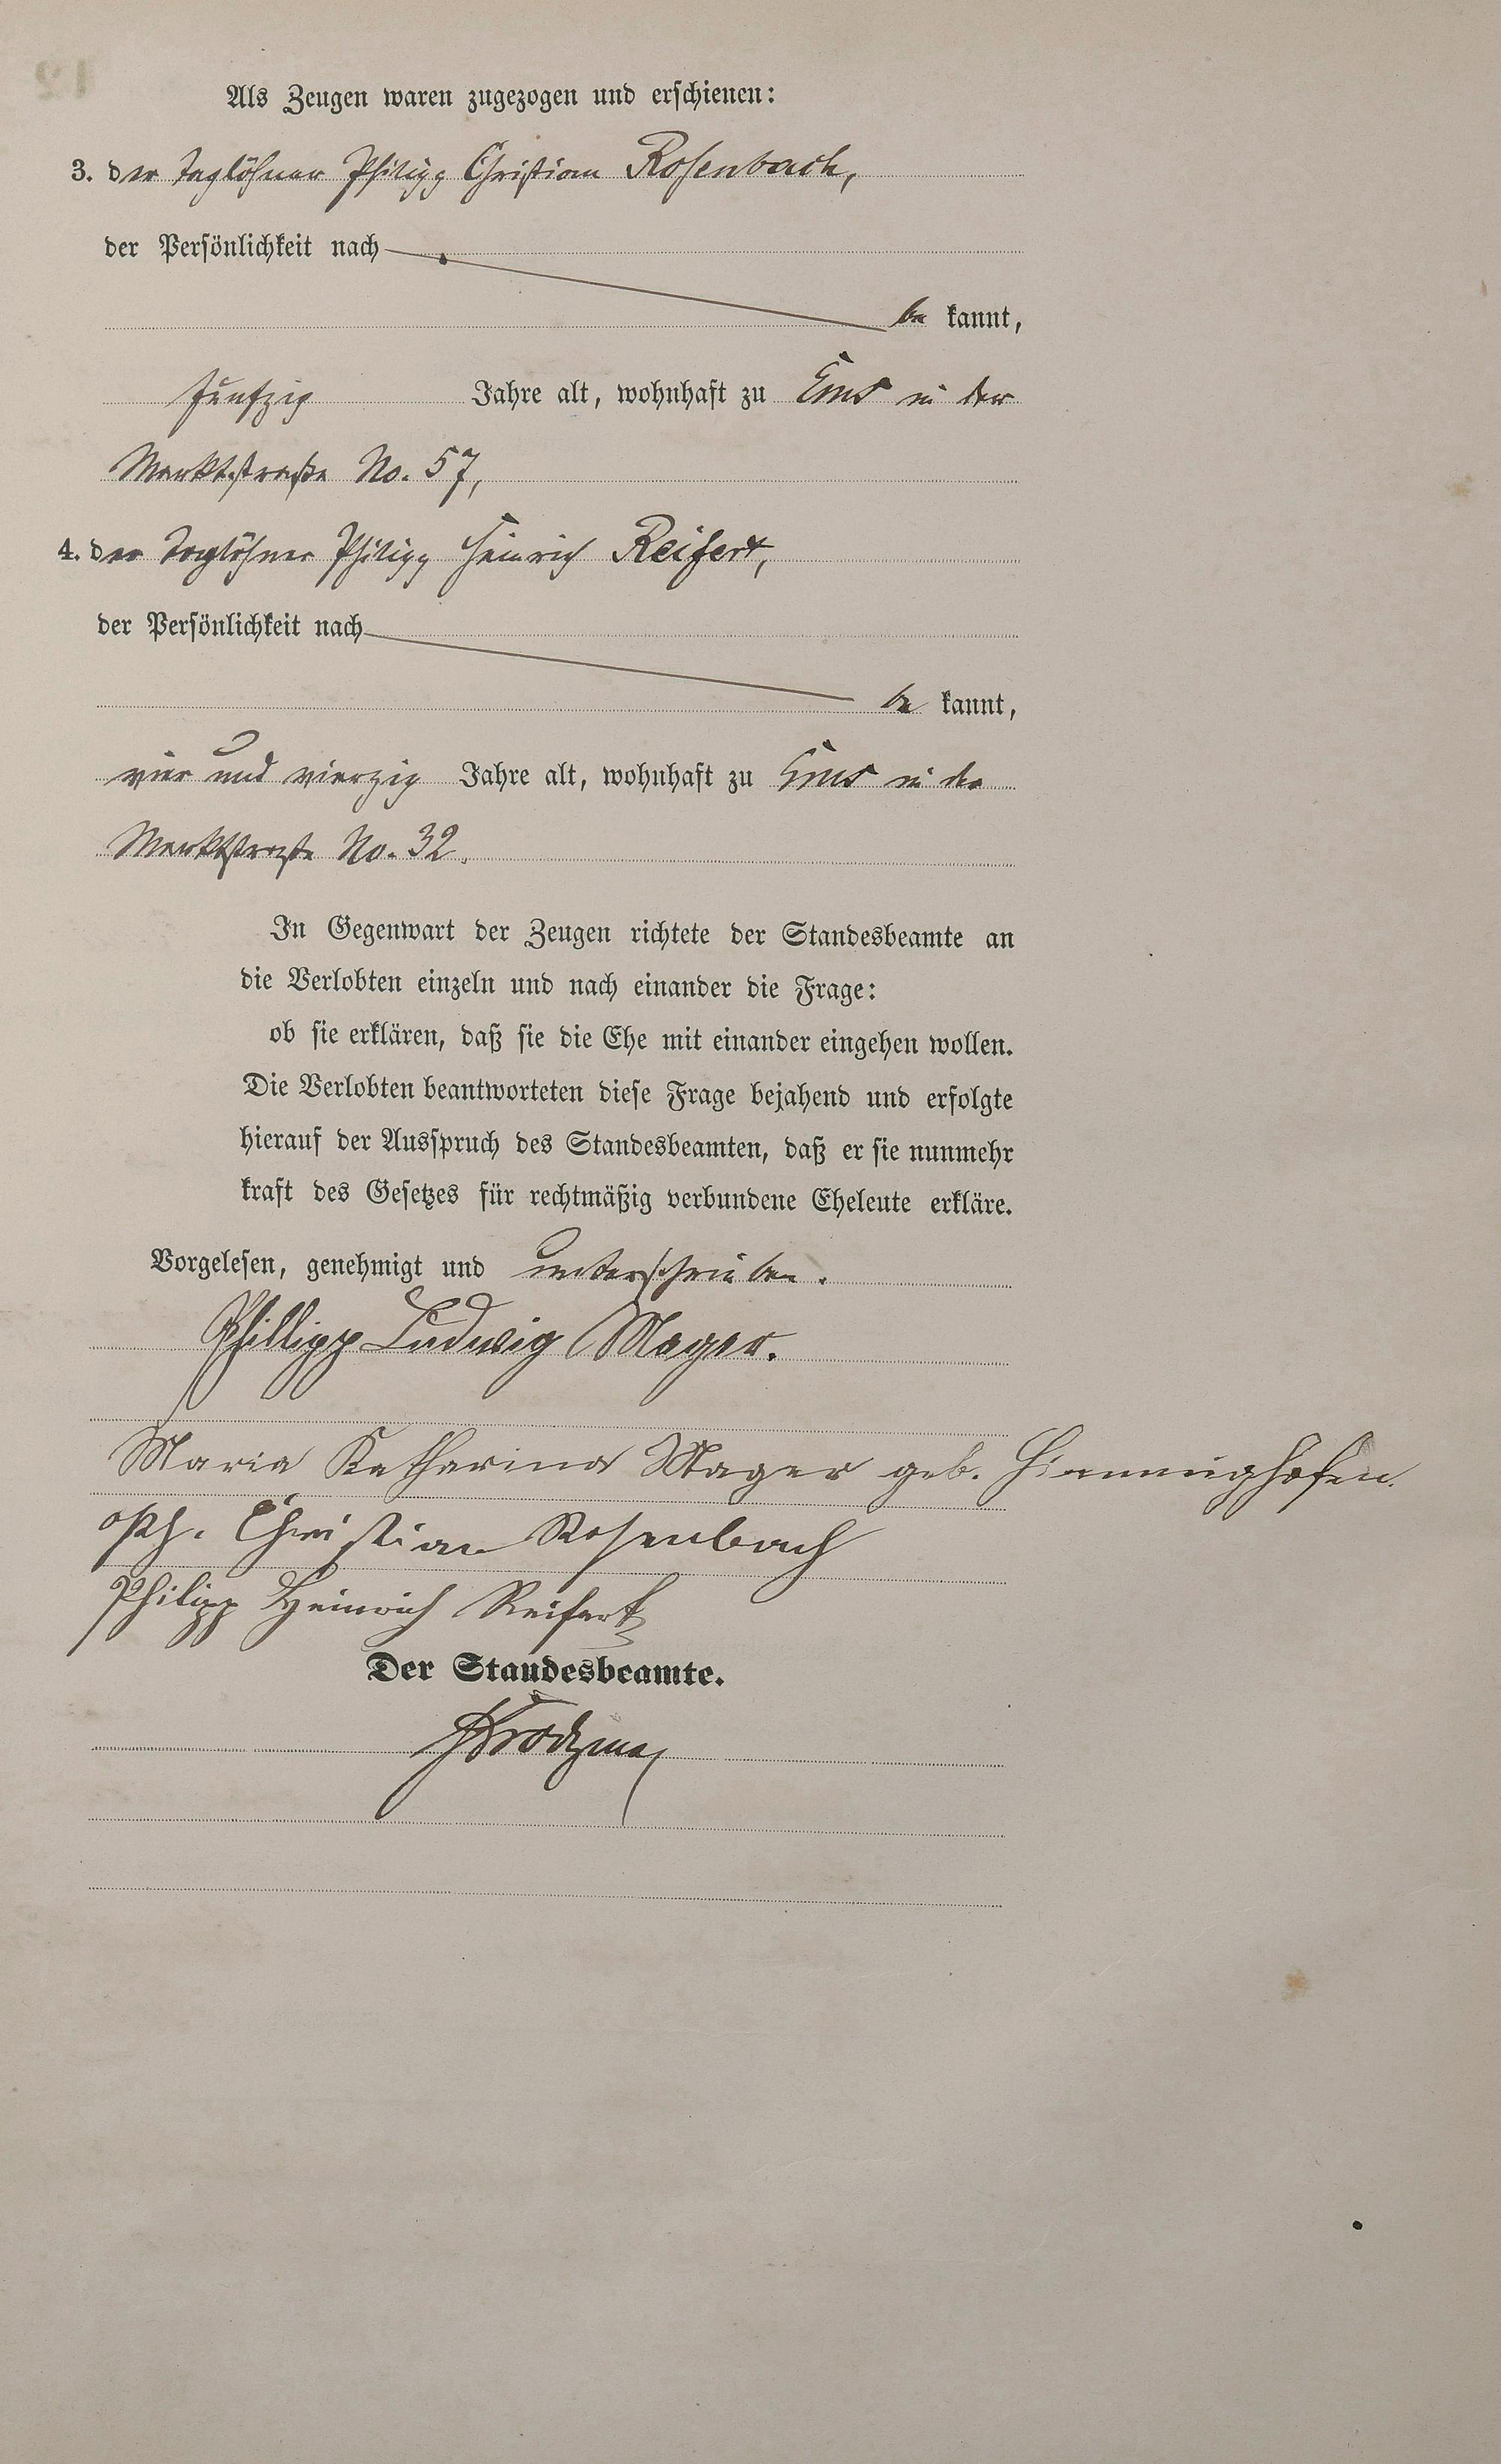 Als Zeugen waren zugezogen und erschienen:
3. der Taglöhner Philipp Christian Rosenbach,
der Persönlichkeit nach
be kannt,
fünfzig Jahre alt, wohnhaft zu Ems in der
Marktstraße No. 57,
4. der Taglöhner Philipp Heinrich Reifert,
der Persönlichkeit nach
be kannt,
vier und vierzig Jahre alt, wohnhaft zu Ems in der
Marktstraße No. 32.
In Gegenwart der Zeugen richtete der Standesbeamte an
die Verlobten einzeln und nach einander die Frage:
ob sie erklären, daß sie die Ehe mit einander eingehen wollen.
Die Verlobten beantworteten diese Frage bejahend und erfolgte
hierauf der Ausspruch des Standesbeamten, daß er sie nunmehr
kraft des Gesetzes für rechtmäßig verbundene Eheleute erkläre.
Vorgelesen, genehmigt und unterschrieben.
Phillipp Ludwig Mager.
Maria Katharina Mager geb.
Ph. Christian Rosenbach
Philipp Heinrich Reifert
Der Standesbeamte.